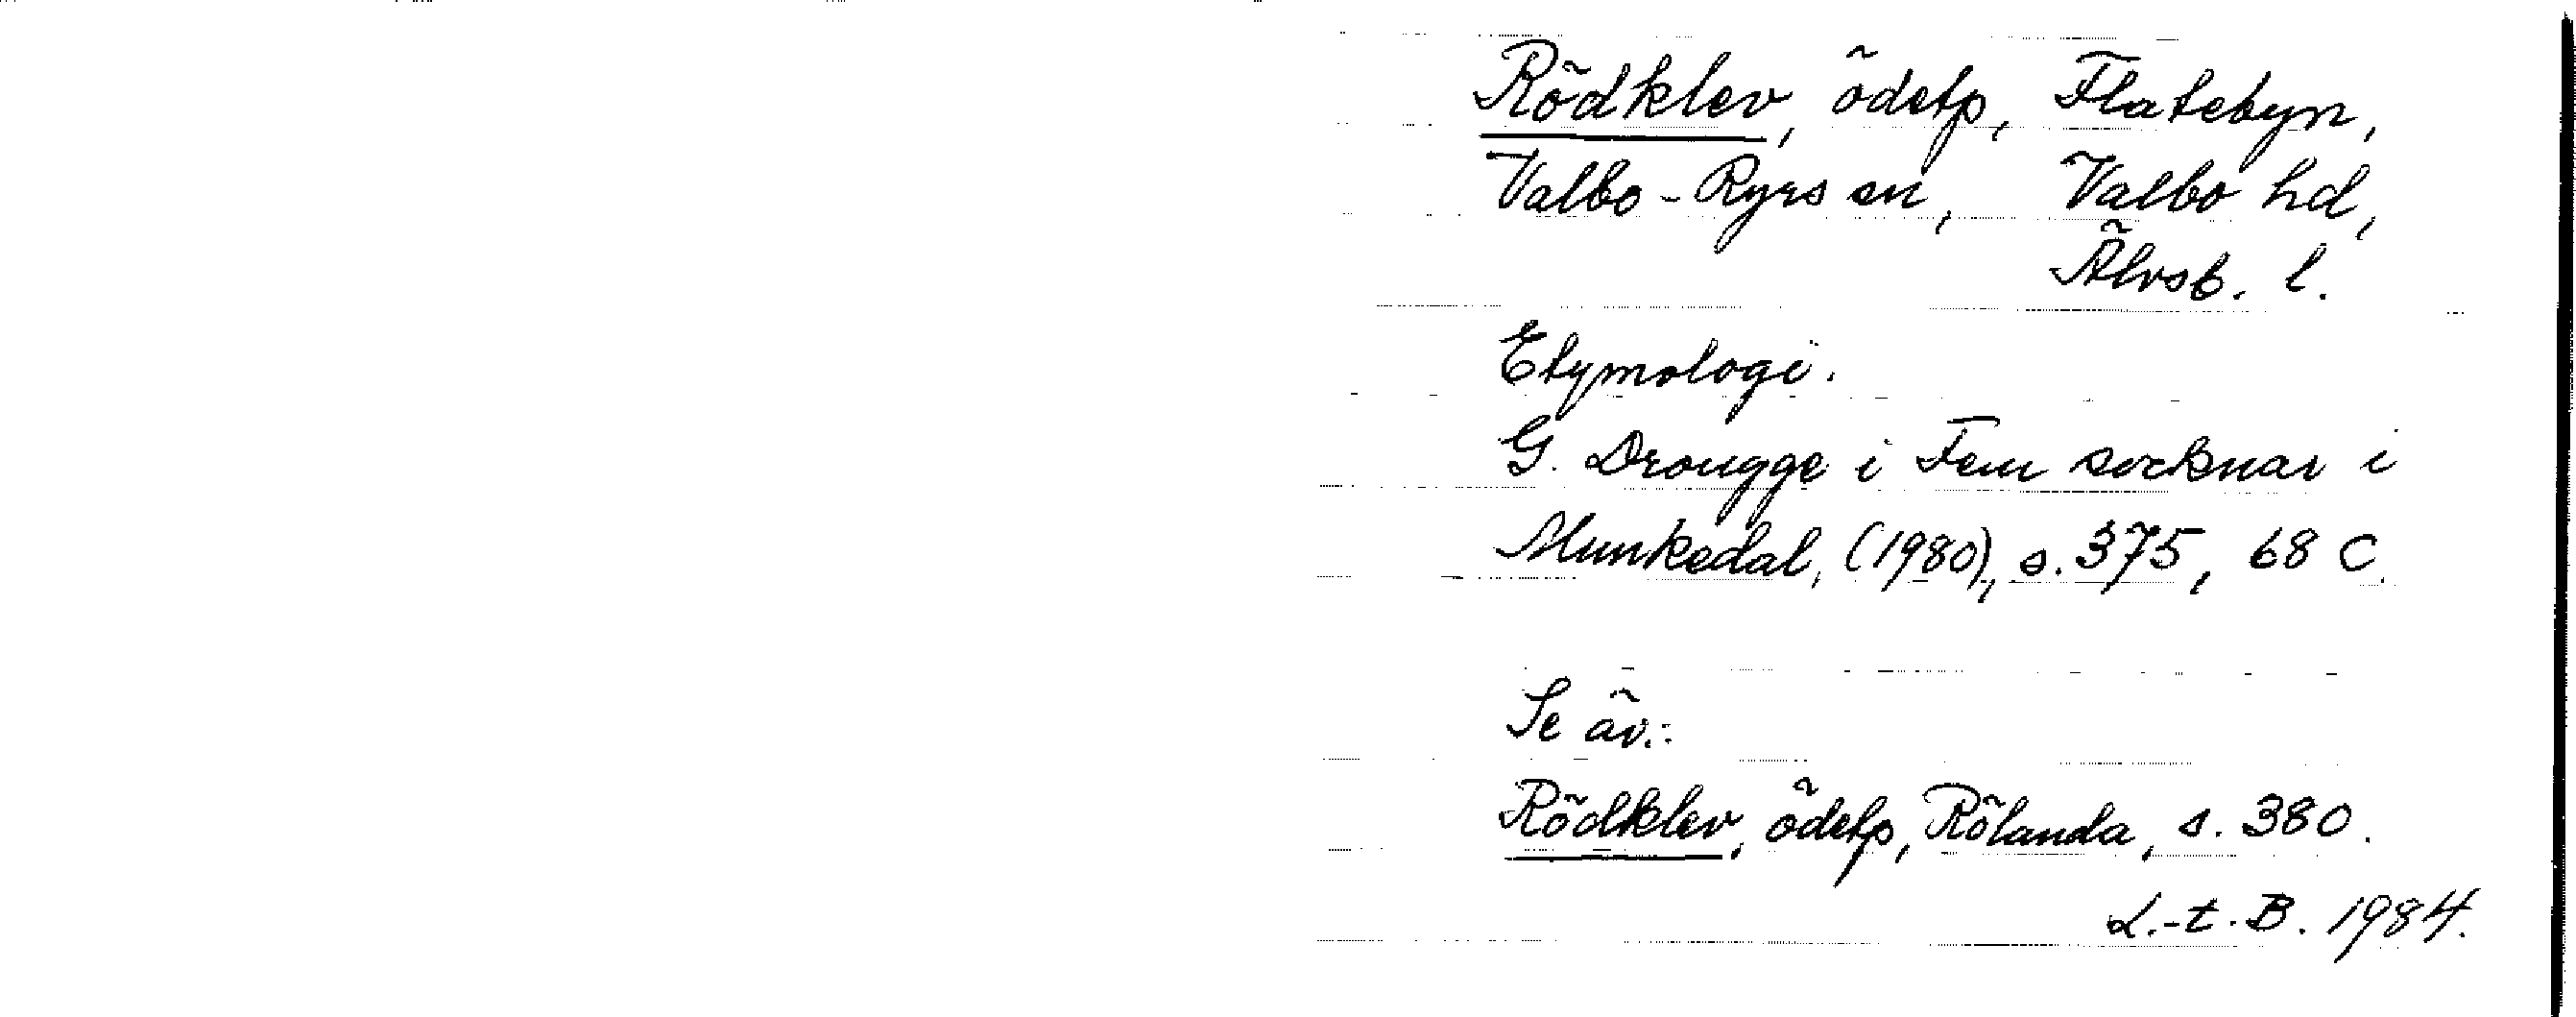 Rödklev, ödetp, Flatebyn,
Valbo-Ryrs sn, Valbo hd,
Älvsb. l.
Etymologi.
G. Drougge i Fem socknar i
Munkedal, (1980), s. 375, 68 C.
Se äv.:
Rödklev, ödetp, Rölanda, s. 380.
L.-t. B. 1984.